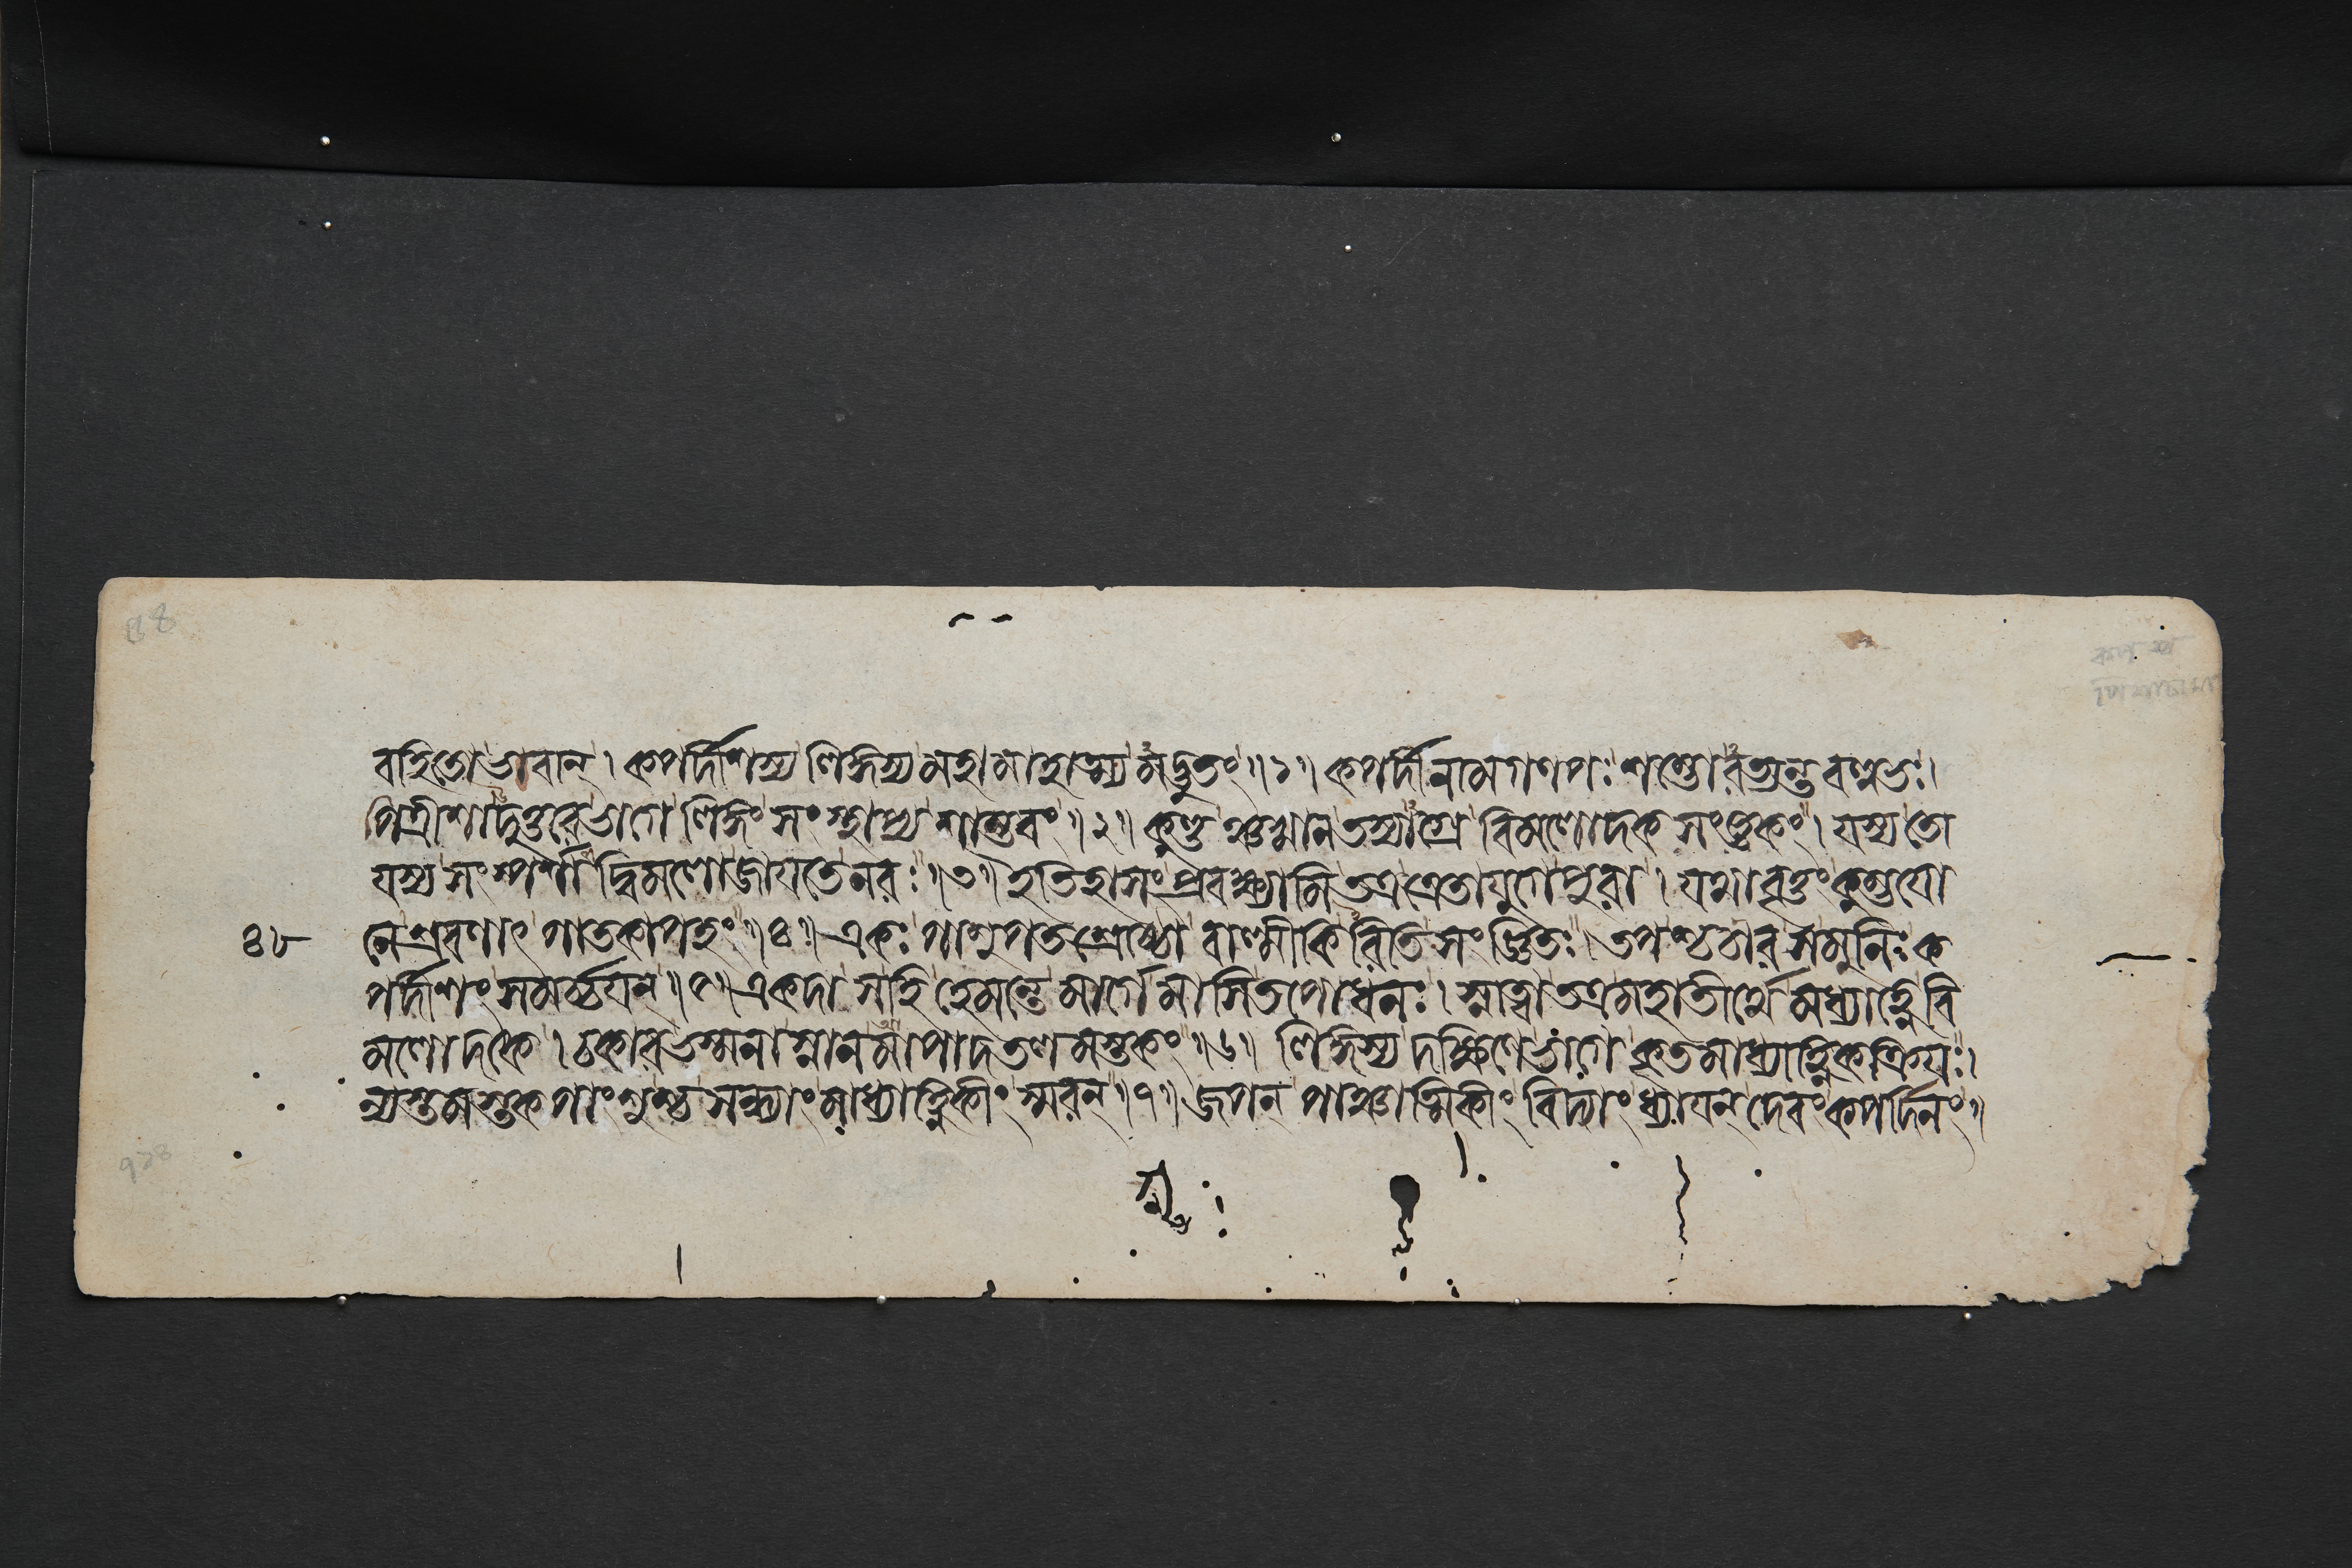 বহিতো ভবান্। কপর্দ্দীশস্য লিঙ্গস্য মহামাহাত্ম্য মদ্ভুতং॥১॥ কপর্দ্দী নাম গণপঃ শম্ভোরত্যন্ত বল্লভঃ।
পিত্রীশাদুত্তরে ভাগে লিঙ্গং সংস্থাপ্য শাম্ভবং॥২॥ কুণ্ডঞ্চখান তস্যাগ্রে বিমলোদক সংজ্ঞকং। যস্য তো
যস্য সংস্পর্শাদ্বিমলো জায়তে নরঃ॥৩॥ ইতিহাসং প্রবক্ষ্যামি তত্র ত্রেতাযুগে পুরা। যথাবৃত্তং কুম্ভযো
নে শ্রবণাৎ পাতকাপহং॥৪॥ একঃ পাশুপতশ্রেষ্ঠো বাল্মীকিরিতি সংজ্ঞিতঃ। তপশ্চচার স মুনিঃ ক
পর্দ্দীশং সমর্চ্চয়ন্॥৫॥ একদা স হি হেমন্তে মার্গে মাসি তপোধনঃ। স্নাত্বা তত্র মহাতীর্থে মধ্যাহ্নে বি
মলোদকে। চকার ভস্মনা স্নানমাপাদতলমস্তকং॥৬॥ লিঙ্গস্য দক্ষিণে ভাগে কৃতমাধ্যাহ্নিকক্রিয়ঃ।
ন্যস্তমস্তকপাংশুশ্চ সন্ধ্যাং মাধ্যাহ্নিকীং স্মরন্॥৭॥ জপন্ পাঞ্চাত্মিকীং বিদ্যাং ধ্যায়ন্ দেবং কপর্দ্দিনং॥
৪৮